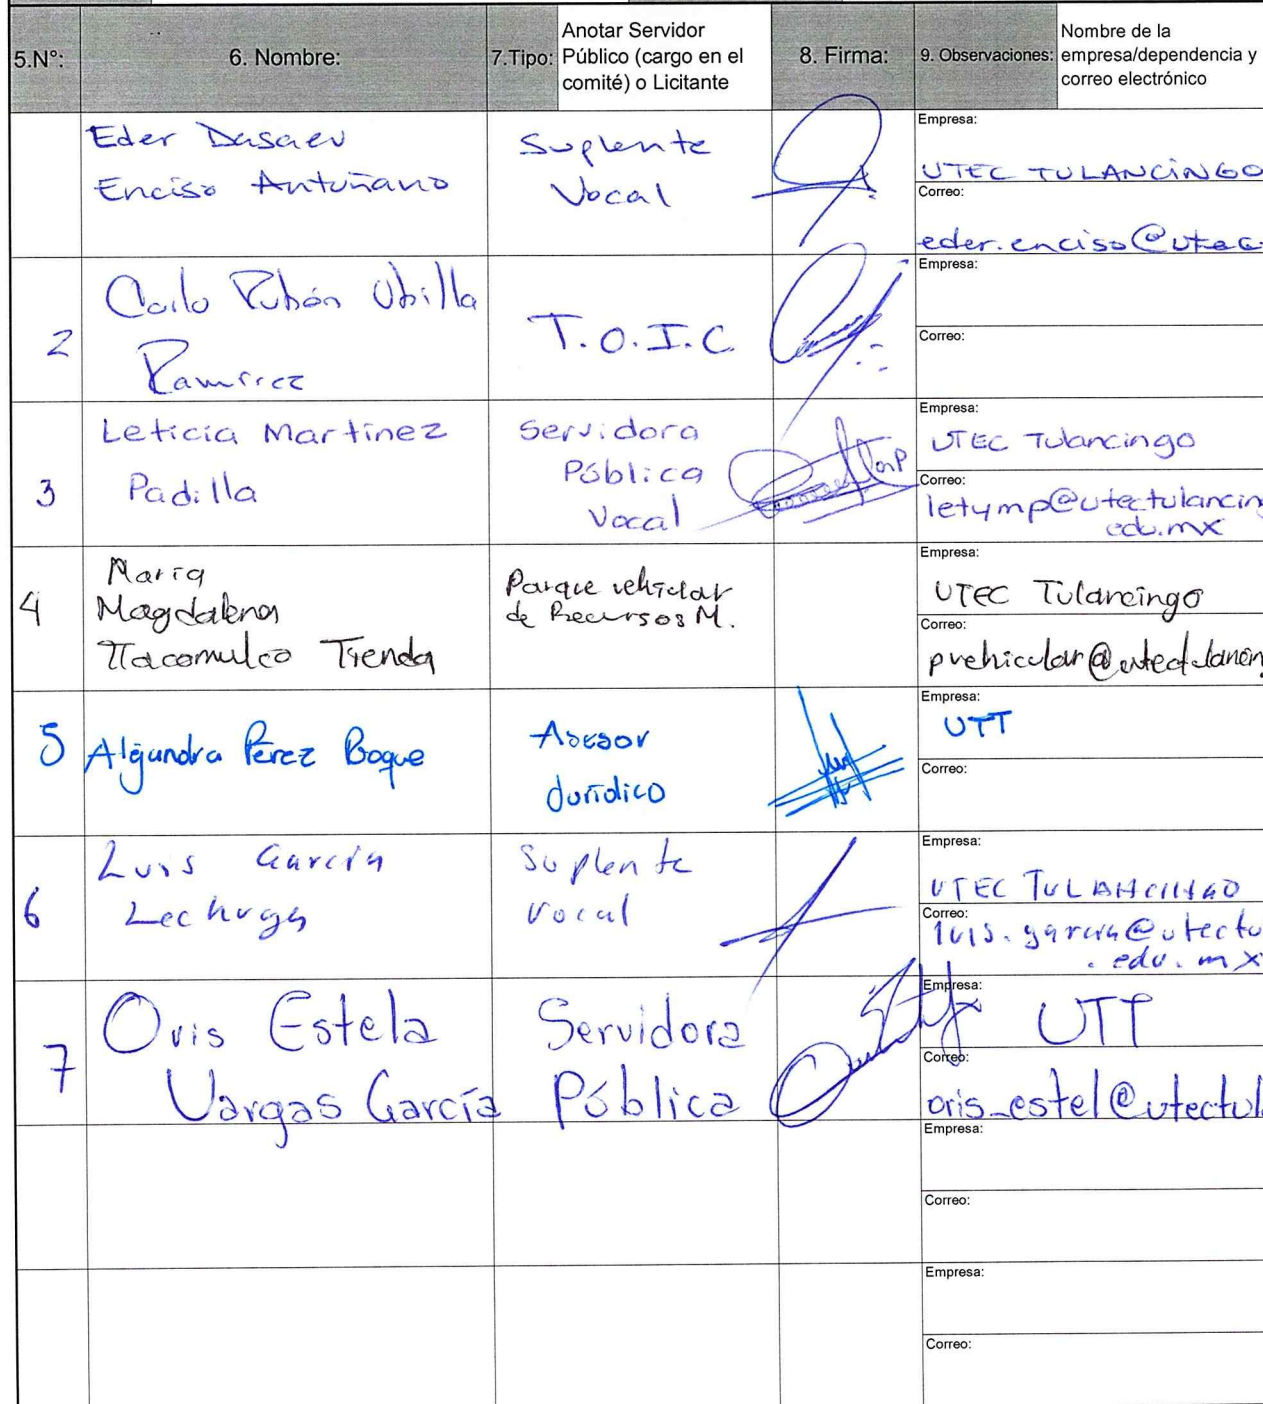 5.N°:
6. Nombre:
7.Tipo:
Anotar Servidor
Público (cargo en el
comité) o Licitante
8. Firma:
9. Observaciones:
Nombre de la
empresa/dependencia y
correo electrónico
Eder Dasaev
Enciso Antuñano
Suplente
Vocal
Empresa:
UTEC TULANCINGO
Correo:
eder.enciso@utec
2
Carlo Rubén Ubilla
Ramírez
T.O.I.C
Empresa:
Correo:
3
Leticia Martínez
Padilla
Servidora
Pública
Vocal
Empresa:
UTEC Tulancingo
Correo:
letymp@utectulancing
edu.mx
4
María
Magdalena
Tlacomulco Trenda
Parque vehicular
de Recursos M.
Empresa:
UTEC Tulancingo
Correo:
pvehicular@utectulancin
5
Alejandra Pérez Boque
Asesor
Jurídico
Empresa:
UTT
Correo:
6
Luis García
Lechuga
Suplente
Vocal
Empresa:
UTEC TULANCINGO
Correo:
luis.garcia@utectu
.edu.mx
7
Oris Estela
Vargas García
Servidora
Pública
Empresa:
UTT
Correo:
oris_estel@utectul
Empresa:
Correo:
Empresa:
Correo: